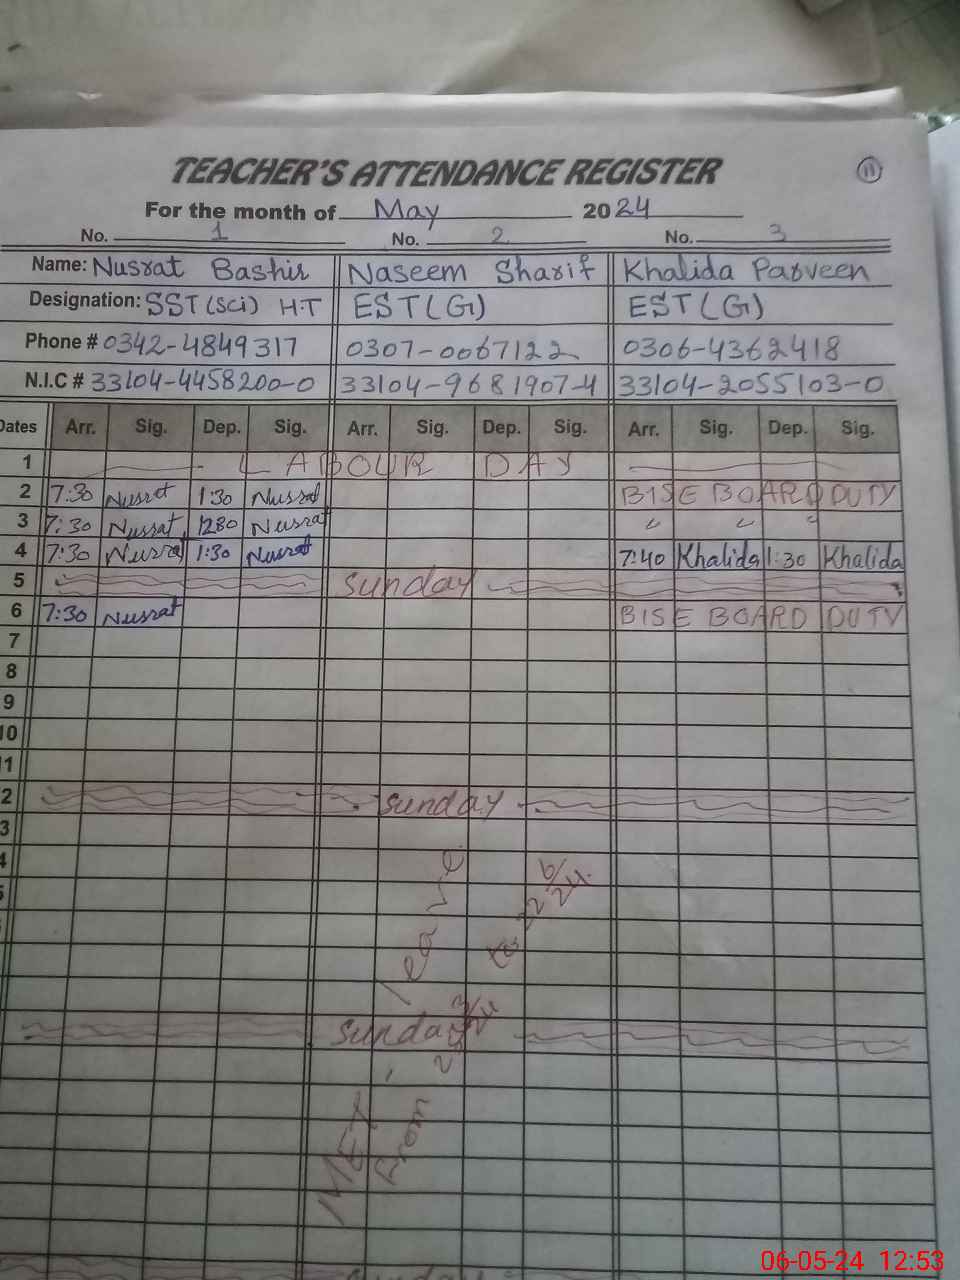 TEACHER'S ATTENDANCE REGISTER 11
For the month of May 2024
No. 1 No. 2 No. 3
Name: Nusrat Bashir Naseem Sharif Khalida Parveen
Designation: SST (Sci) H.T EST (G) EST (G)
Phone # 0342-4849317 0307-0067122 0306-4362418
N.I.C # 33104-4458200-0 33104-9681907-4 33104-2055103-0
Dates Arr. Sig. Dep. Sig. Arr. Sig. Dep. Sig. Arr. Sig. Dep. Sig.
1 LABOUR DAY
2 7:30 Nusrat 1:30 Nusrat BISE BOARD DUTY
3 7:30 Nusrat 1230 Nusrat
4 7:30 Nusrat 1:30 Nusrat 7:40 Khalida 1:30 Khalida
5 sunday
6 7:30 Nusrat BISE BOARD DUTY
7
8
9
10
11
2 sunday
3
4
5
leave
sunday
From
to 22 6/24.
sunday
06-05-24 12:53